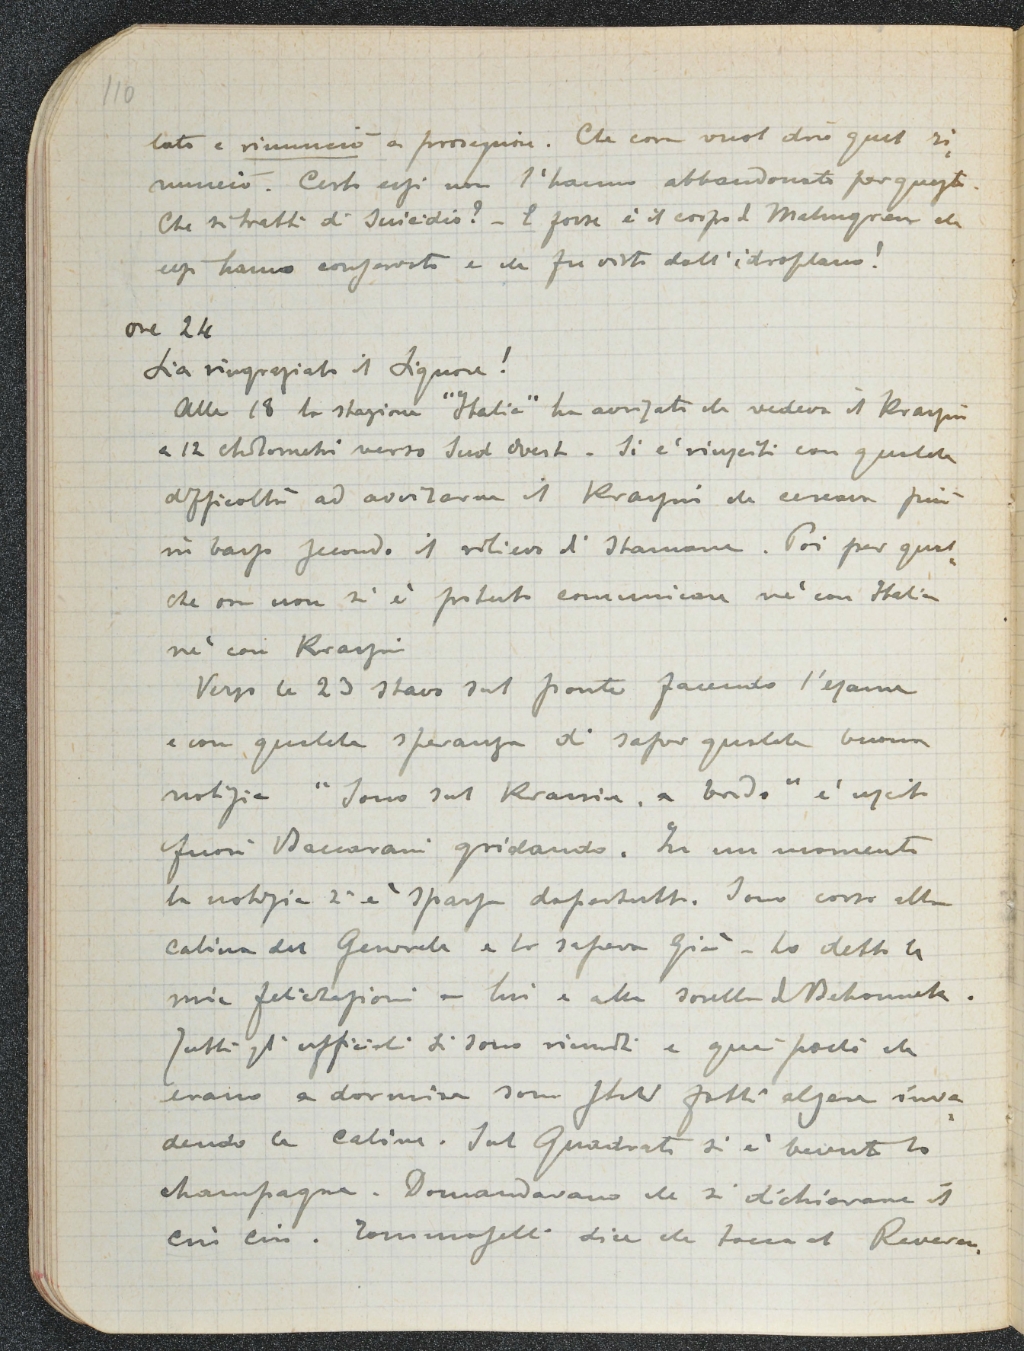 110
lato e rinunciò a proseguire. Che cosa vuol dire quel ri-
nunciò. Certo essi non l'hanno abbandonato per questo.
Che si tratti di suicidio? - E forse è il corpo di Malmgreen che
essi hanno conservato e che fu visto dall'idroplano!
ore 24
Sia ringraziato il Signore!
Alle 18 la stazione "Italia" ha avvisato che vedeva il Krassin
a 12 chilometri verso Sud Ovest - Si è riusciti con qualche
difficoltà ad avvisarne il Krassin che cercava più
in basso secondo il rilievo di stamane. Poi per qual-
che ora non si è potuto comunicare nè con Italia
nè con Krassin
Verso le 23 stavo sul ponte facendo l'esame
e con qualche speranza di saper qualche buona
notizia "Sono sul Krassin, a bordo" è uscito
fuori Baccarani gridando. In un momento
la notizia si è sparsa dapertutto. Sono corso alla
cabina del Generale e lo sapeva già - ho detto le
mie felicitazioni a lui e alla sorella di Behounek.
Tutti gli ufficiali si sono riuniti e quei pochi che
erano a dormire sono stati fatti alzare inva-
dendo le cabine. Sul Quadrato si è bevuto lo
champagne. Domandavano che si dichiarasse il
cin cin. Tommaselli dice che tocca al Reveren-